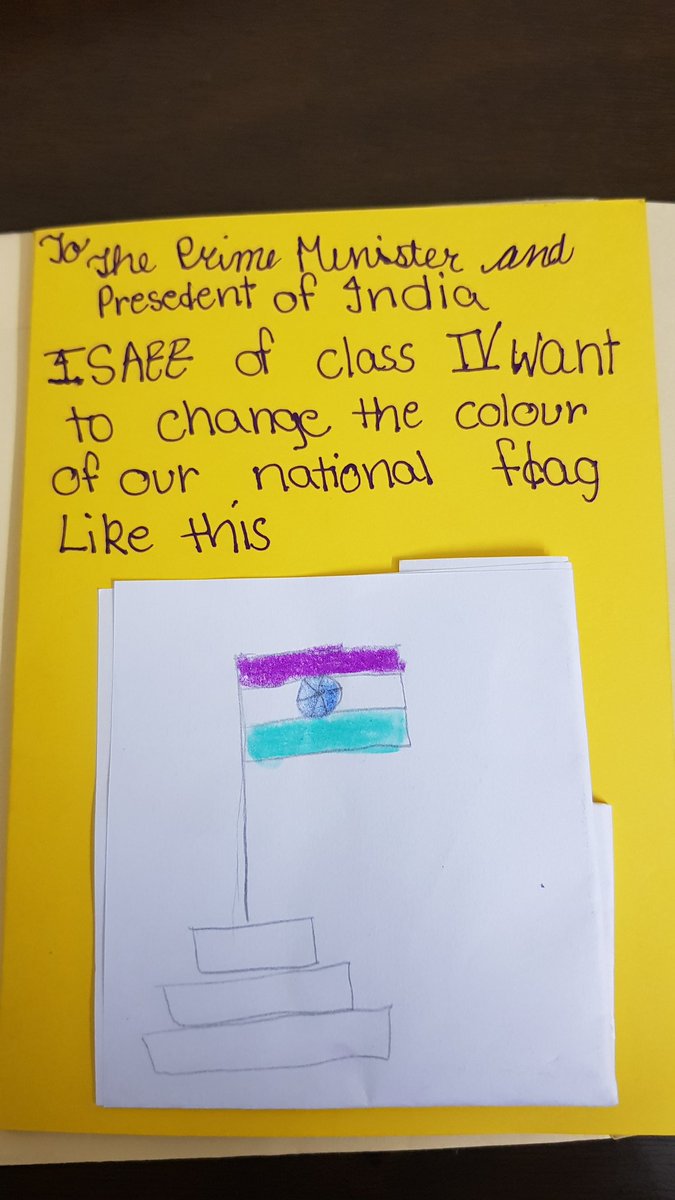 To The Prime Minister and
Presedent of India
I SAEE of class IV want
to change the colour
of our national flag
Like this